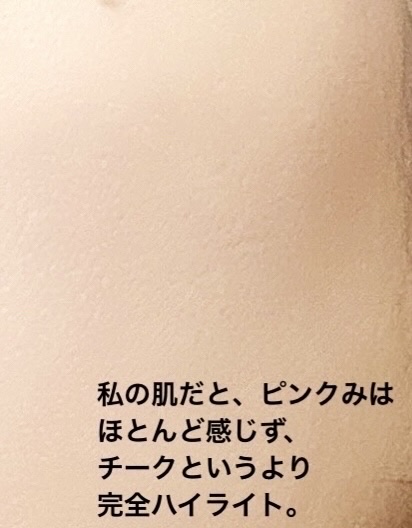 私の肌だと、ピンクみは
ほとんど感じず、
チークというより
完全ハイライト。